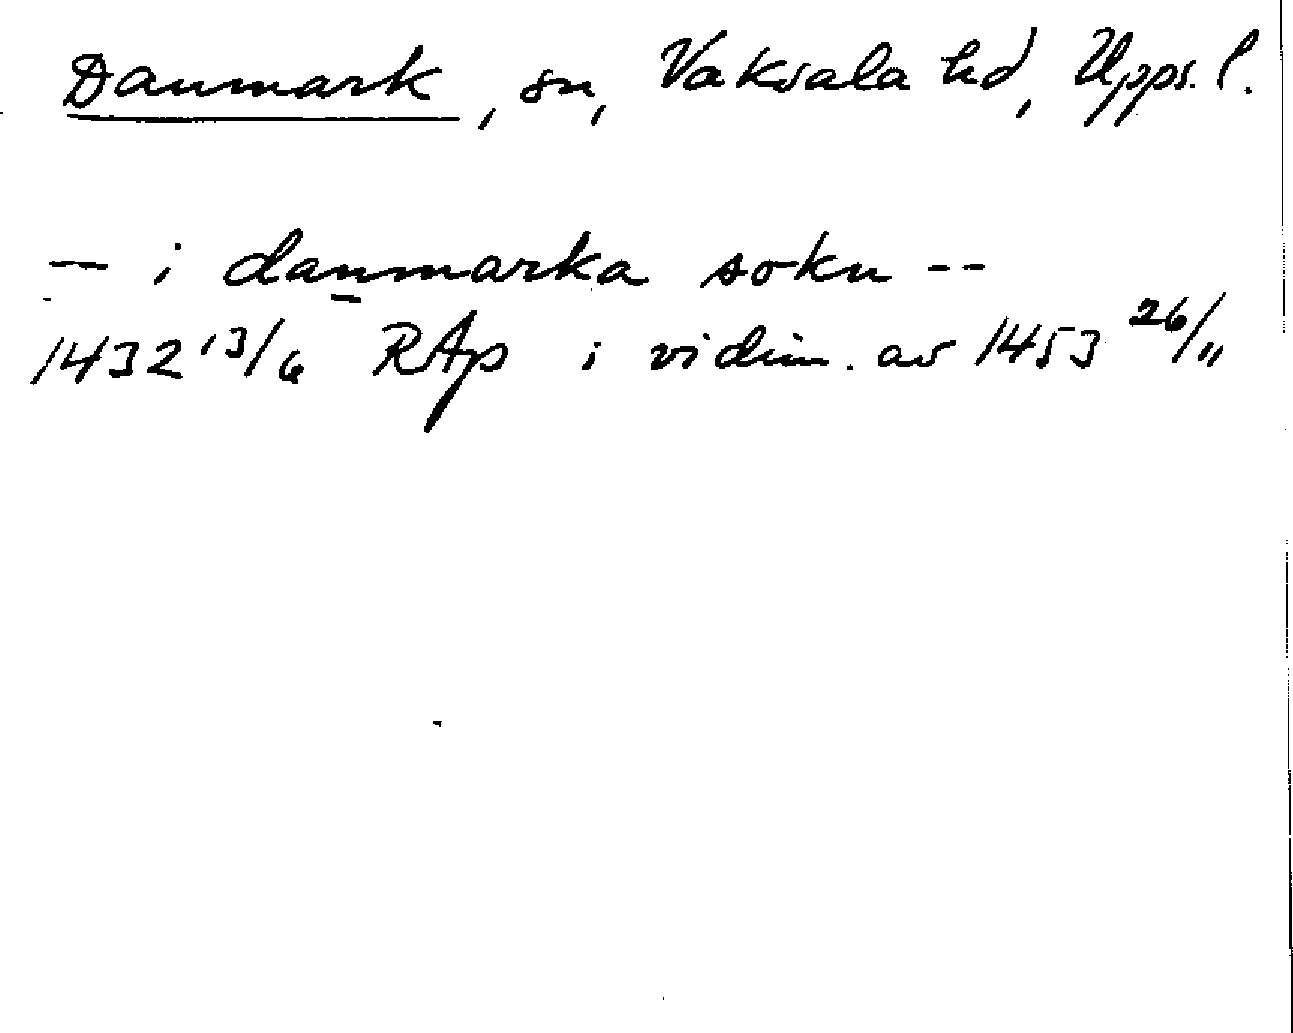 Danmark, sn, Vaksala hd, Upps. l.
— i danmarka sokn --
1432 13/6 RAp i vidim. av 1453 26/11